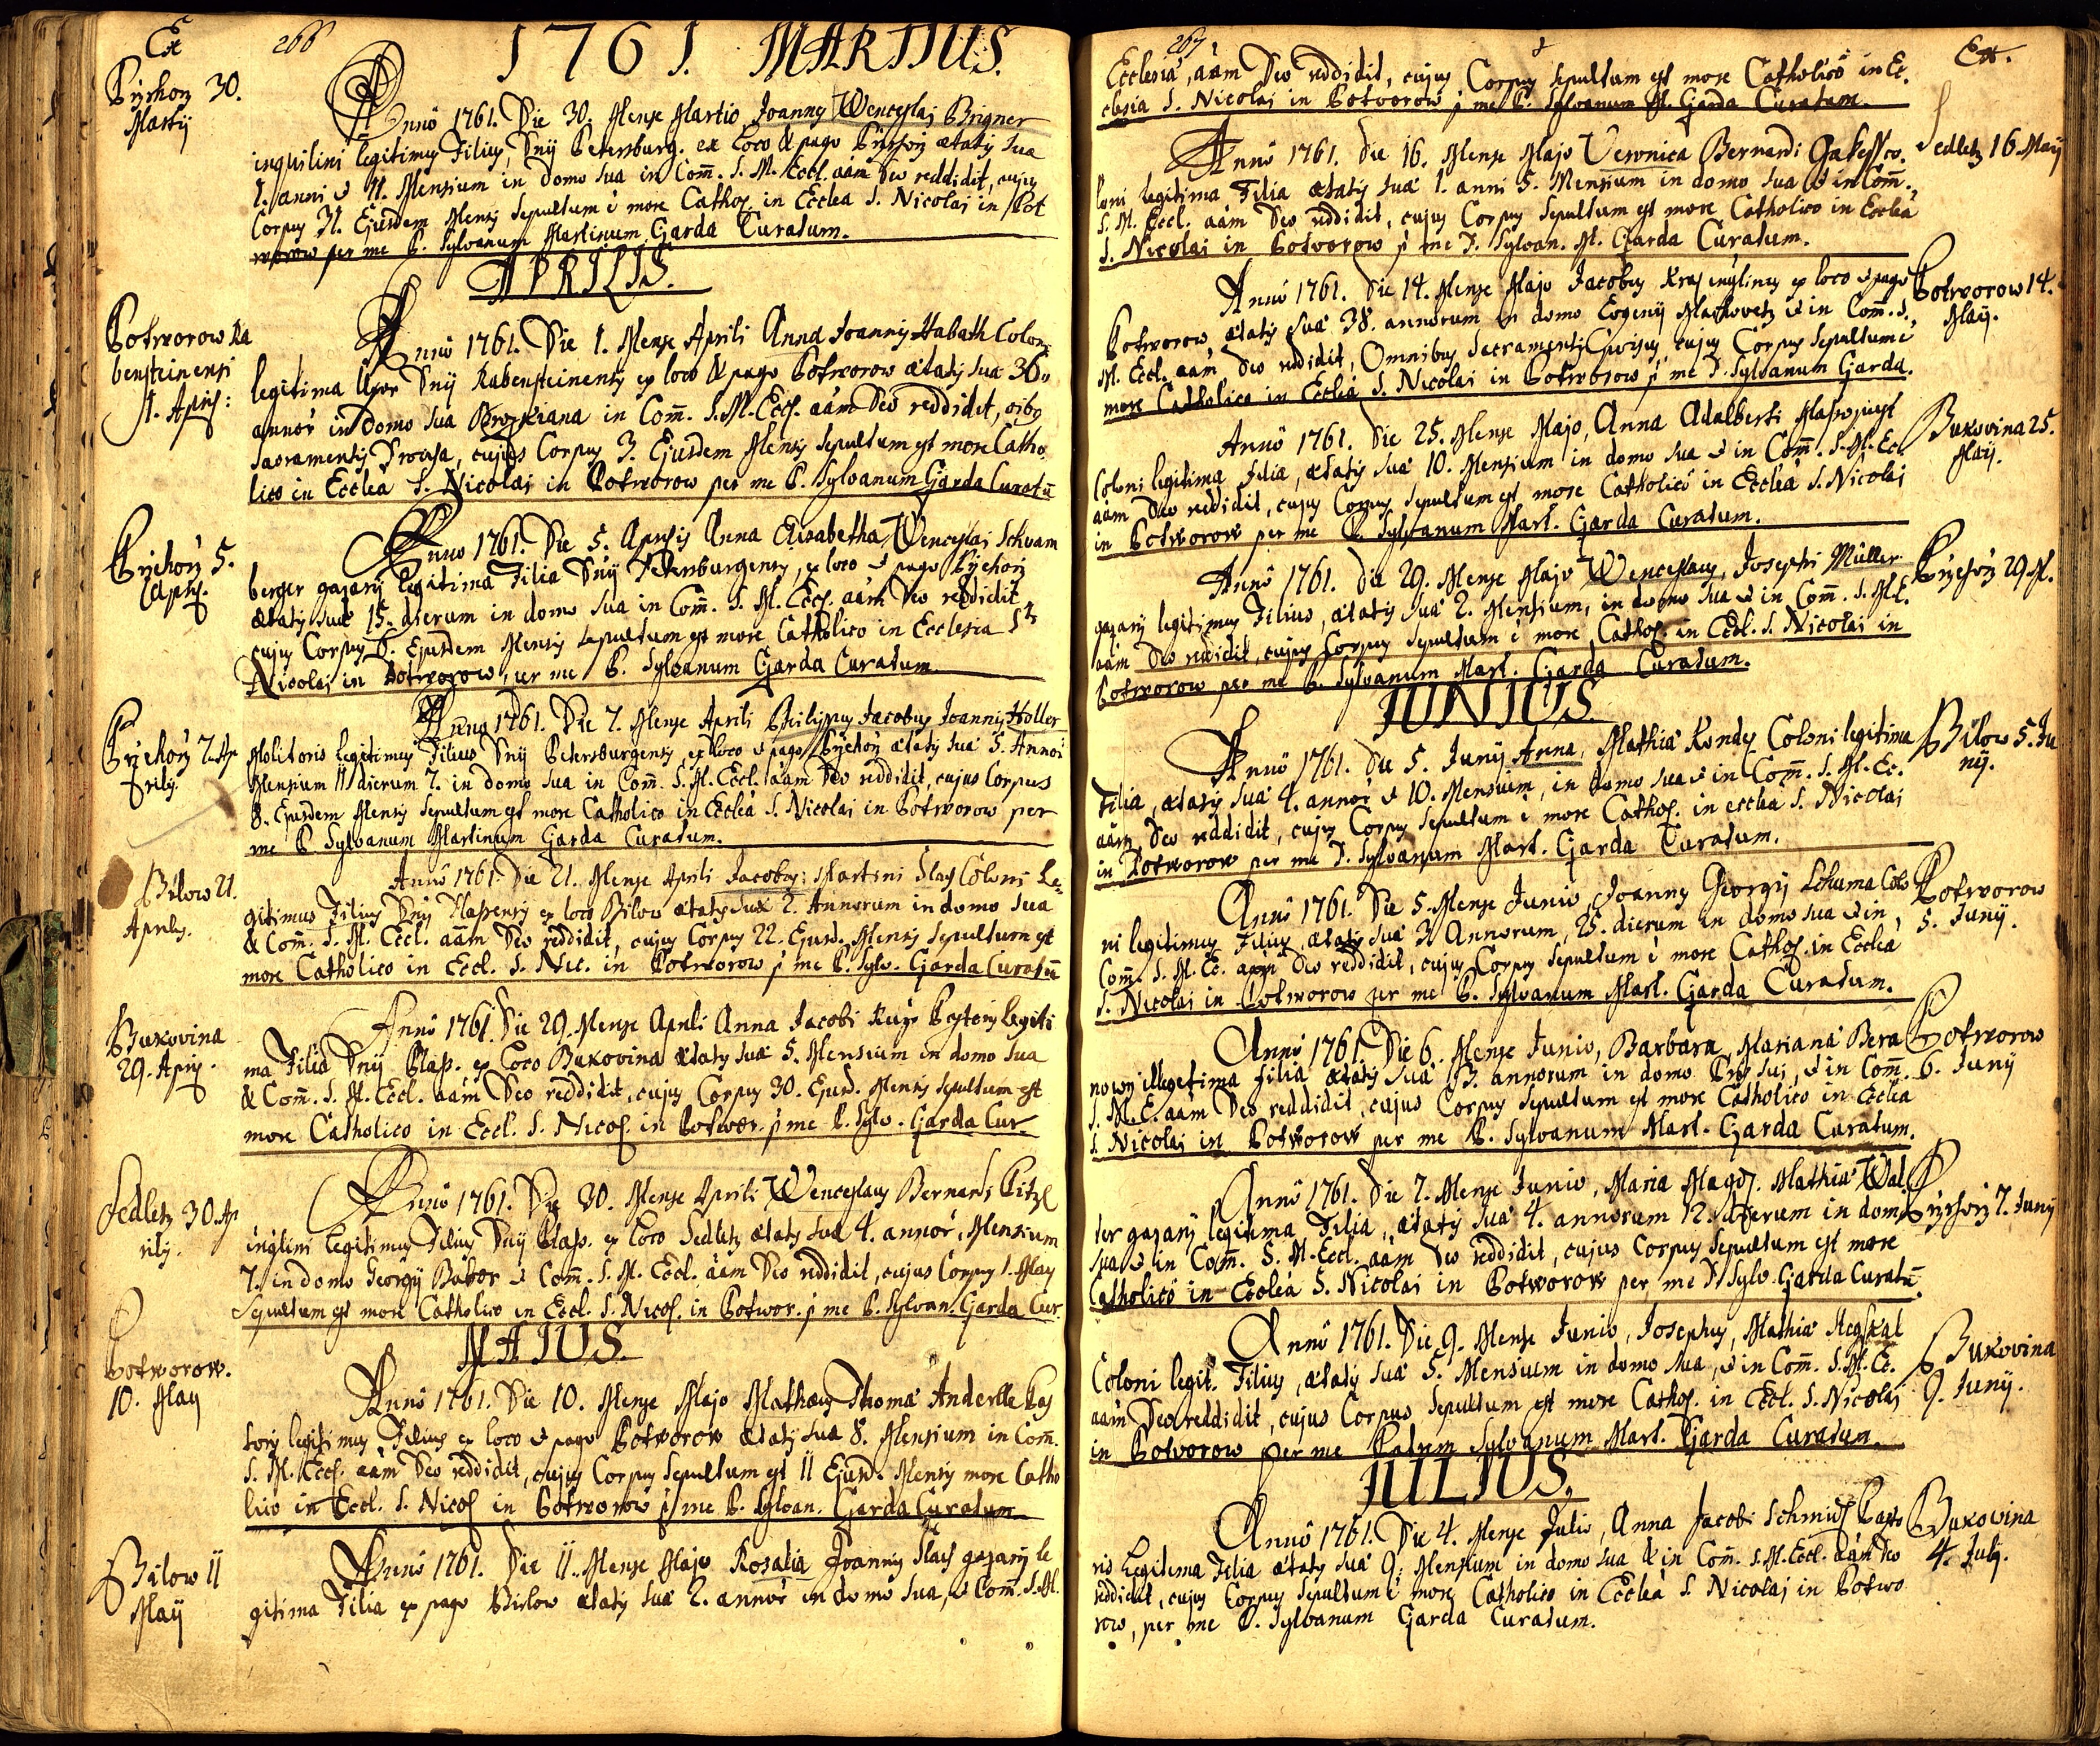 Ex
266
1761. MARTIUS.
Býchorz 30.
Martÿ
Annô 1761. Die 30. Mense Martio Joannes Wenceslaj Brigner
inquilini legitimus Filius, Dnij Petersburg. ex loco & pago Býchorz ætatis suæ
1. anni & 11. Mensium in domo sua in Com̄. S. M. Eccl. aām Deo reddidit, cujus
Corpus 31. Ejusdem Mensis sepultum ē more Cathol. in Ecclea S. Nicolai in Pot
worow per me P. Sylvanum Martinum Garda Curatum.
APRILIS.
Potworow Ra
bensteinensi
1. April:
Annô 1761. Die 1. Mense Aprili Anna Joannis Habath Coloni
legitima Uxor Dnij Rabensteinensis ex loco & pago Potworow ætatis suæ 36.
annor̄ in domo sua in Com̄. S. M. Eccl. aām Deo reddidit, oibus
Sacramentis Provisa, cujus Corpus 3. Ejusdem Mensis sepultum est more Catho
lico in Ecclea S. Nicolai in Potworow per me P. Sylvanum Garda Curatū
Býchorz 5.
Aprilis.
Anno 1761. Die 5. Aprilis Anna Elisabetha Wenceslai Schvam
berger gazarij legitima Filia Dnij Petersburgensis, ex loco & pago Býchorz
ætatis suæ 15. dierum in domo sua in Com̄. S. M. Eccl. aām Deo reddidit
cujus Corpus 6. Ejusdem Mensis sepultum est more Catholico in Ecclesia Sti
Nicolai in Potworow, per me P. Sylvanum Garda Curatum.
Býchorz 7. Ap
rilis.
Anno 1761. Die 7. Mense Aprili Philippus Jacobus Joannis Holler
Molitoris legitimus Filius Dnij Petersburgensis, ex loco & pago Býchorz ætatis suæ 5. Annor̄
Mensium 11 dierum 7. in domo sua in Com̄. S. M. Eccl. aām Deo reddidit, cujus Corpus
8. Ejusdem Mensis sepultum est more Catholico in Ecclea S. Nicolai in Potworow per
me P. Sylvanum Martinum Garda Curatum.
Bilow 21.
Aprilis.
Annô 1761. Die 21. Mense Aprili Jacobus Martini Slach Coloni Le
gitimus Filius Dnij Plassensis ex loco Bilow ætatis suæ 2. Annorum in domo sua
& Com̄. S. M. Eccl. aām Deo reddidit, cujus Corpus 22. Ejusd. Mensis sepultum est
more Catholico in Eccl. S. Nic. in Potworow p̄ me P. Sylv. Garda Curatū
Bukovina
29. Aprilis.
Annô 1761. Die 29. Mense Aprili Anna Jacobi Pastoris legiti
ma Filia Dnij Plass. ex loco Bukovina ætatis suæ 5. Mensium in domo sua
& Com̄. S. M. Eccl. aām Deo reddidit, cujus Corpus 30. Ejusd. Mensis sepultum est
more Catholico in Eccl. S. Nicol. in Potwor. p̄ me P. Sylv. Garda Cur.
Sedletz 30. Ap
rilis.
Anno 1761. Die 30. Mense Aprili Wenceslaus Bernardi Pitzl
inquilini legitimus Filius Dnij Plass. ex loco Sedletz ætatis suæ 4. annor̄, Mensium
7. in domo Georgij Babor & Com̄. S. M. Eccl. aām Deo reddidit, cujus Corpus 1. May
Sepultum est more Catholico in Eccl. S. Nicol. in Potwor. p̄ me P. Sylvan. Garda Cur.
MAIUS.
Potworow.
10. May
Annô 1761. Die 10. Mense Majo Mathæus Thomæ Anderlle Pas
toris legitimus Filius ex loco & pago Potworow ætatis suæ 8. Mensium in Com̄.
S. M. Eccl. aām Deo reddidit, cujus Corpus sepultum est 11 Ejusd. Mensis more Catho
lico in Eccl. S. Nicol. in Potworow p̄ me P. Sylvan. Garda Curatum
Bilow 11
May
Anno 1761. Die 11. Mense Majo Rosalia Joannis Slach gazarij le
gitima Filia ex pago Bielow ætatis suæ 2. annor̄ in domo sua, & Com̄. S. M.
267
Ex.
Ecclesiæ, aām Deo reddidit, cujus Corpus sepultum est more Catholicô in Ec
clesia S. Nicolai in Potvorow p̄ me P. Sylvanum M. Garda Curatum.
Sedletz 16. May
Annô 1761. Die 16. Mense Majo Veronica Bernardi Co
loni legitima Filia ætatis suæ 1. anni 5. Mensium in domo sua & in Com̄.
S. M. Eccl. aām Deo reddidit, cujus Corpus sepultum est more Catholico in Ecclea
S. Nicolai in Potvorow p̄ me P. Sylvan. M. Garda Curatum.
Potworow 14.
May.
Annô 1761. Die 14. Mense Majo Jacobus Kraj inquilinus ex loco & pago
Potworow, ætatis suæ 38. annorum in domo & in Com̄. S.
M. Eccl. aām Deo reddidit, Omnibus Sacramentis Provisus, cujus Corpus Sepultum ē
more Catholico in Ecclea S. Nicolai in Potworow p̄ me P. Sylvanum Garda.
Bukovina 25.
May.
Annô 1761. Die 25. Mense Majo, Anna Adalberti
Coloni legitima Filia, ætatis suæ 10. Mensium in domo sua & in Com̄. S. M. Ec.
aām Deo reddidit, cujus Corpus sepultum est more Catholicô in Ecclea S. Nicolai
in Potworow per me P. Sylvanum Mart. Garda Curatum.
Býchorz 29. M.
Annô 1761. Die 29. Mense Majo Wenceslaus, Josephi Müller
gazarij legitimus Filius, ætatis suæ 2. Mensium, in domo sua & in Com̄. S. M. E.
aām Deo reddidit, cujus Corpus sepultum ē more Cathol. in Eccl. S. Nicolai in
Potworow per me P. Sylvanum Mart. Garda Curatum.
JUNIUS.
Bilow 5. Ju
nij.
Annô 1761. Die 5. Junij Anna, Mathiæ Kondes Coloni legitima
Filia, ætatis suæ 4. annor̄ & 10. Mensium, in domo sua & in Com̄. S. M. Ec.
aām Deo reddidit, cujus Corpus sepultum ē more Cathol. in ecclea S. Nicolai
in Potworow per me P. Sylvanum Mart. Garda Curatum.
Potworow
5. Junij.
Annô 1761. Die 5. Mense Junio, Joannes Georgij Schuma Colo
ni legitimus Filius, ætatis suæ 3. Annorum, 25. dierum in domo sua & in
Com̄. S. M. Ec. aām Deo reddidit, cujus Corpus sepultum ē more Cathol. in Ecclea
S. Nicolai in Potworow per me P. Sylvanum Mart. Garda Curatum.
Potworow
6. Junij
Annô 1761. Die 6. Mense Junio, Barbara Marianæ Bera
nowy illegitima filia ætatis suæ 13. annorum in domo Pris sui, & in Com̄.
S. M. E. aām Deo reddidit, cujus Corpus sepultum est more Catholicô in Ecclea
S. Nicolai in Potworow per me P. Sylvanum Mart. Garda Curatum.
Býchorz 7. Junij
Annô 1761. Die 7. Mense Junio, Maria Magd. Mathiæ Wal
ter gazarij legitima Filia, ætatis suæ 4. annorum 12. dierum in domo
sua & in Com̄. S. M. Eccl. aām Deo reddidit, cujus Corpus sepultum est more
Catholicô in Ecclea S. Nicolai in Potworow per me P. Sylv. Garda Curatū.
Bukovina
9. Junij.
Annô 1761. Die 9. Mense Junio, Josephus, Mathiæ
Coloni legit. Filius, ætatis suæ 5. Mensium in domo sua, & in Com̄. S. M. Ec.
aām Deo reddidit, cujus Corpus Sepultum est more Cathol. in Eccl. S. Nicolai
in Potvorow per me Patrem Sylvanum Mart. Garda Curatum.
JULIUS.
Bukovina
4. Julij.
Annô 1761. Die 4. Mense Julio, Anna Jacobi Schmid Pasto
ris Legitima Filia ætatis suæ 9. Mensium in domo sua & in Com̄. S. M. Eccl. aām Deo
reddidit, cujus Corpus sepultum ē more Catholico in Ecclea S. Nicolai in Potwo
row, per me P. Sylvanum Garda Curatum.